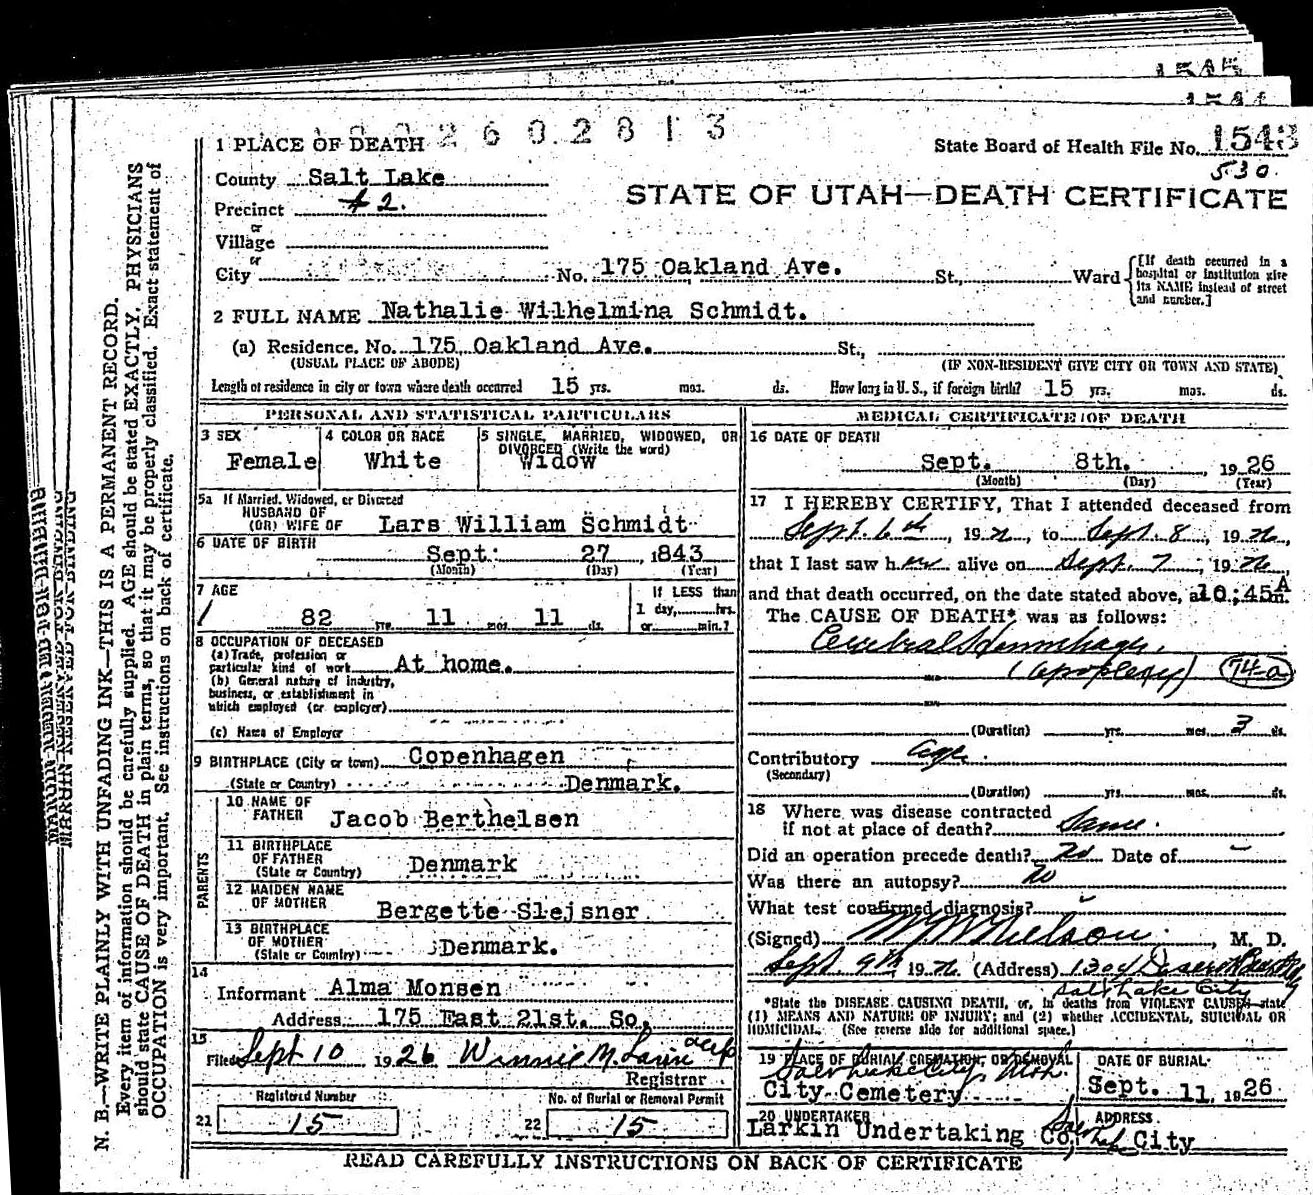 1545
1544
2 6 0 2 8 1 3
1 PLACE OF DEATH
State Board of Health File No. 1543
530.
County Salt Lake
STATE OF UTAH—DEATH CERTIFICATE
Precinct #2.
or
Village
or
City No. 175 Oakland Ave. St., Ward
[If death occurred in a hospital or institution give its NAME instead of street and number.]
2 FULL NAME Nathalie Wilhelmina Schmidt.
(a) Residence. No. 175 Oakland Ave. St.,
(USUAL PLACE OF ABODE) (IF NON-RESIDENT GIVE CITY OR TOWN AND STATE)
Length of residence in city or town where death occurred 15 yrs. mos. ds. How long in U. S., if foreign birth? 15 yrs. mos. ds.
PERSONAL AND STATISTICAL PARTICULARS
3 SEX
Female
4 COLOR OR RACE
White
5 SINGLE, MARRIED, WIDOWED, OR
DIVORCED (Write the word)
Widow
5a If Married, Widowed, or Divorced
HUSBAND OF
(OR) WIFE OF Lars William Schmidt
6 DATE OF BIRTH
Sept. 27 1843
(Month) (Day) (Year)
7 AGE
82 yrs. 11 mos. 11 ds.
If LESS than
1 day, hrs.
or min.?
8 OCCUPATION OF DECEASED
(a) Trade, profession or
particular kind of work At home.
(b) General nature of industry,
business, or establishment in
which employed (or employer)
(c) Name of Employer
9 BIRTHPLACE (City or town) Copenhagen
(State or Country) Denmark.
PARENTS
10 NAME OF
FATHER Jacob Berthelsen
11 BIRTHPLACE
OF FATHER
(State or Country) Denmark
12 MAIDEN NAME
OF MOTHER Bergette Slejsner
13 BIRTHPLACE
OF MOTHER
(State or Country) Denmark.
14
Informant Alma Monsen
Address 175 East 21st. So.
15
Filed Sept 10 1926 Winnie M.
Registrar
Registered Number
21 15
No. of Burial or Removal Permit
22 15
MEDICAL CERTIFICATE OF DEATH
16 DATE OF DEATH
Sept. 8th. 1926
(Month) (Day) (Year)
17 I HEREBY CERTIFY, That I attended deceased from
Sept. 6th, 1926, to Sept. 8, 1926,
that I last saw her alive on Sept. 7, 1926,
and that death occurred, on the date stated above, at 10:45A m.
The CAUSE OF DEATH* was as follows:
Cerebral Hemorrhage,
(apoplexy) 74-a
(Duration) yrs. mos. 3 ds.
Contributory Age.
(Secondary)
(Duration) yrs. mos. ds.
18 Where was disease contracted
if not at place of death? Same.
Did an operation precede death? no Date of –
Was there an autopsy? no
What test confirmed diagnosis?
(Signed) Nielson, M. D.
Sept 9th 1926 (Address) 1304 Deseret Bank Bldg
Salt Lake City
*State the DISEASE CAUSING DEATH, or, in deaths from VIOLENT CAUSES, state
(1) MEANS AND NATURE OF INJURY; and (2) whether ACCIDENTAL, SUICIDAL OR
HOMICIDAL. (See reverse side for additional space.)
19 PLACE OF BURIAL, CREMATION, OR REMOVAL
Salt Lake City, Utah.
City Cemetery
DATE OF BURIAL
Sept. 11, 1926
20 UNDERTAKER
Larkin Undertaking Co,
ADDRESS
Salt Lake City
READ CAREFULLY INSTRUCTIONS ON BACK OF CERTIFICATE
MARGIN RESERVED FOR BINDING
N. B.—WRITE PLAINLY WITH UNFADING INK—THIS IS A PERMANENT RECORD.
Every item of information should be carefully supplied. AGE should be stated EXACTLY. PHYSICIANS
should state CAUSE OF DEATH in plain terms, so that it may be properly classified. Exact statement of
OCCUPATION is very important. See instructions on back of certificate.